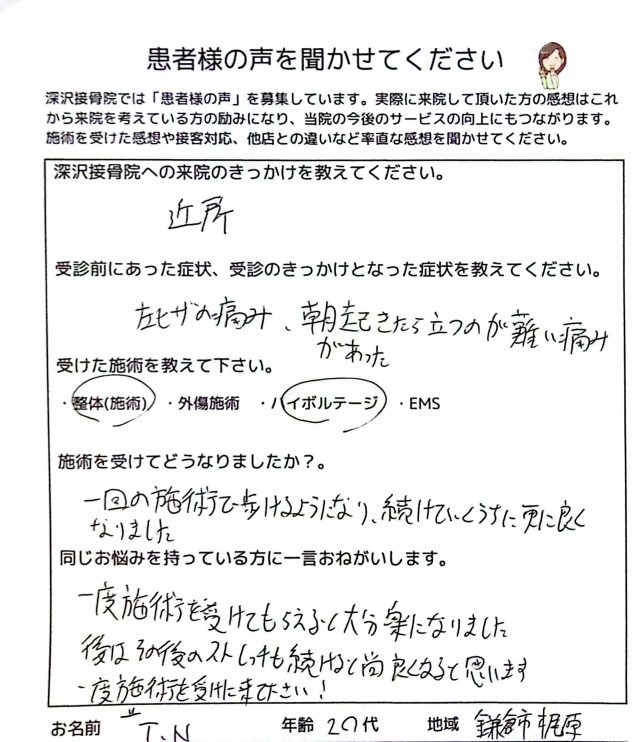 患者様の声を聞かせてください
深沢接骨院では「患者様の声」を募集しています。実際に来院して頂いた方の感想はこれ
から来院を考えている方の励みになり、当院の今後のサービスの向上にもつながります。
施術を受けた感想や接客対応、他店との違いなど率直な感想を聞かせてください。
深沢接骨院への来院のきっかけを教えてください。
近所
受診前にあった症状、受診のきっかけとなった症状を教えてください。
左ヒザの痛み、朝起きたら立つのが難い痛み
があった
受けた施術を教えて下さい。
・整体(施術) ・外傷施術 ・ハイボルテージ ・EMS
施術を受けてどうなりましたか？。
一回の施術で歩けるようになり、続けていくうちに更に良く
なりました
同じお悩みを持っている方に一言おねがいします。
一度施術を受けてもらえると大分楽になりました
後はその後のストレッチも続けると尚良くなると思います
一度施術を受けに来て下さい！
お名前 T.N 年齢 20代 地域 鎌倉市梶原